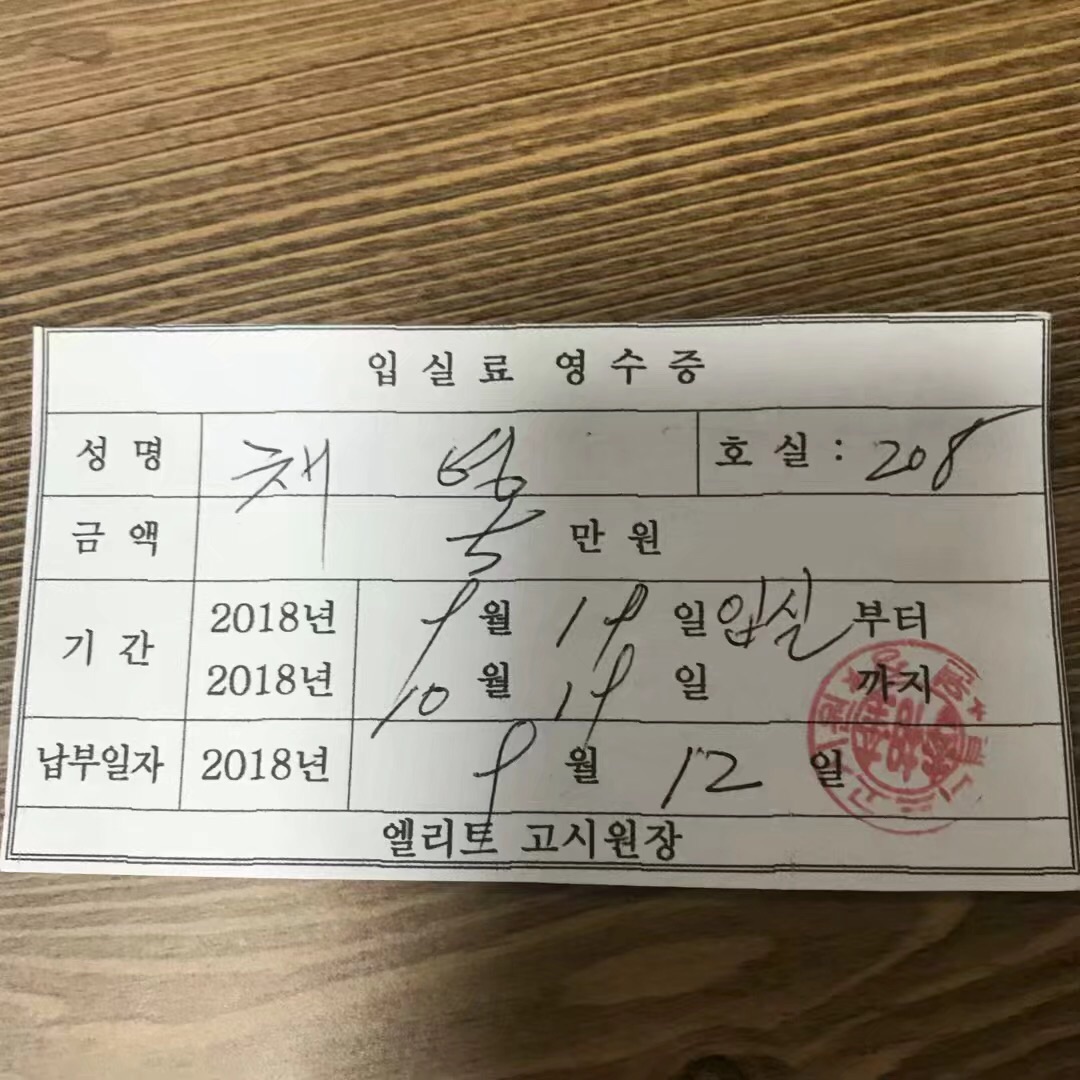 입실료 영수증
성명 채 형 호실 : 208
금액 5 만원
기간 2018년 9월 19일 입실 부터
2018년 10월 19일 까지
납부일자 2018년 9월 12일
엘리트 고시원장